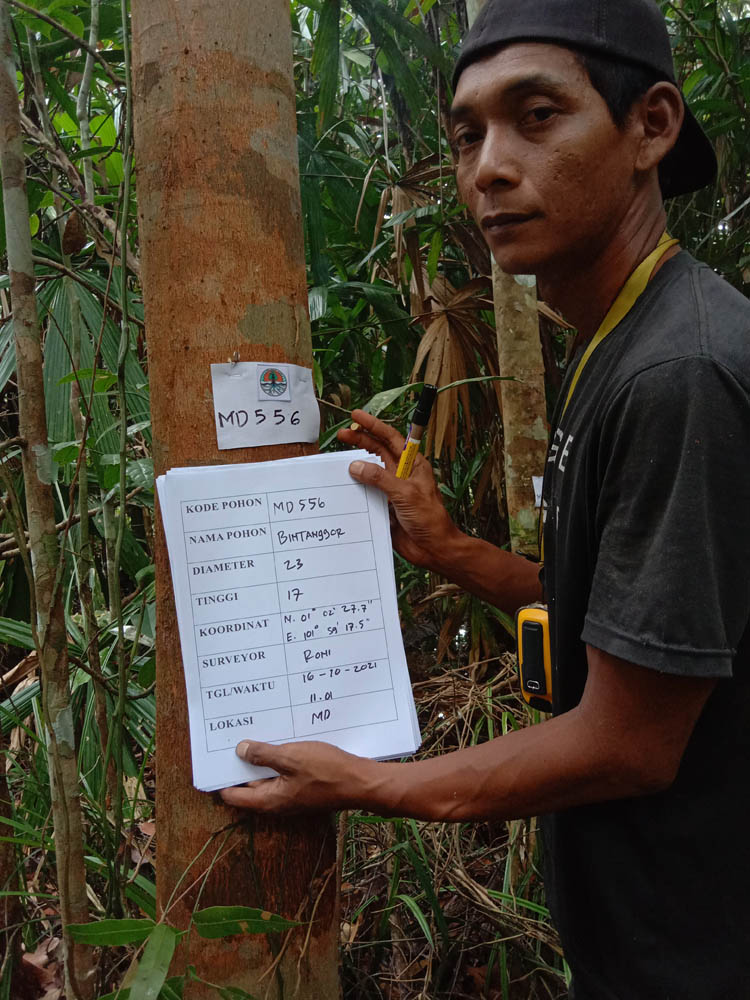 MD 556
KODE POHON MD 556
NAMA POHON BINTANGGOR
DIAMETER 23
TINGGI 17
KOORDINAT N. 01° 02' 27.7"
E. 101° 59' 17.5"
SURVEYOR ROMI
TGL/WAKTU 16-10-2021
11.01
LOKASI MD